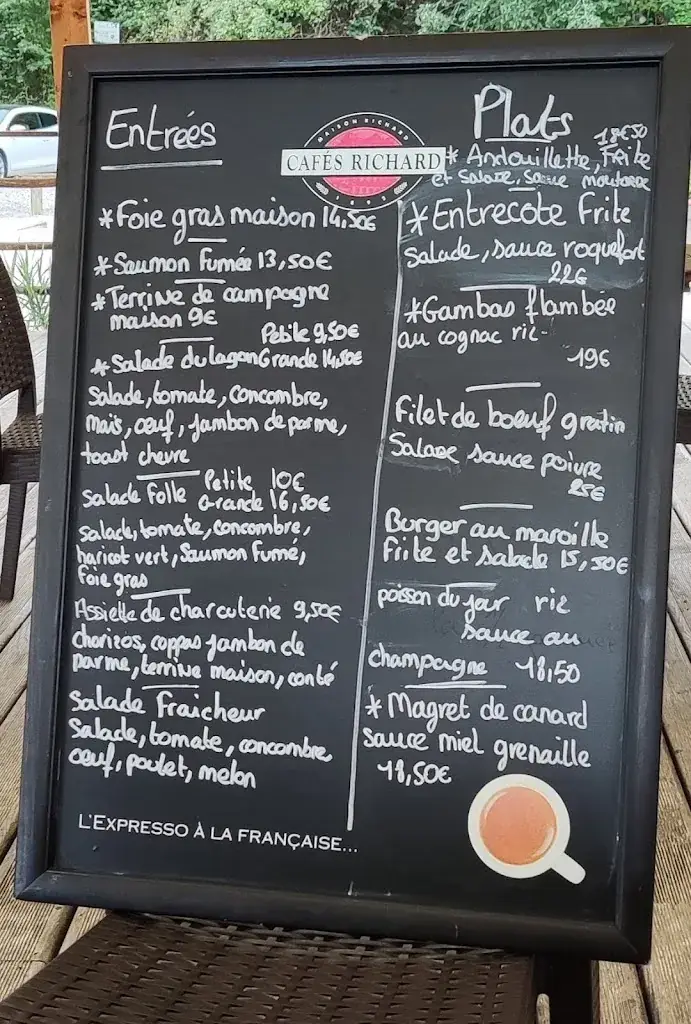 Entrées
*Foie gras maison 14,50€
*Saumon Fumée 13,50€
*Terrine de campagne
maison 9€
Petite 9,50€
*Salade du lagon Grande 14,50€
Salade, tomate, concombre,
maïs, œuf, jambon de parme,
toast chevre
Salade Folle Petite 10€
Grande 16,50€
Salade, tomate, concombre,
haricot vert, Saumon Fumé,
foie gras
Assiette de charcuterie 9,50€
chorizos, coppas jambon de
parme, terrine maison, conté
Salade Fraicheur
Salade, tomate, concombre,
œuf, poulet, melon
L'EXPRESSO À LA FRANÇAISE...
MAISON RICHARD
CAFÉS RICHARD
1892
Plats
18€50
* Andouillette, Frite
et salade, sauce moutarde
*Entrecote Frite
Salade, sauce roquefort
22€
*Gambas flambée
au cognac riz-
19€
Filet de boeuf gratin
Salade sauce poivre
25€
Burger au maroille
Frite et salade 15,50€
poisson du jour riz
sauce au
champagne 18,50
* Magret de canard
Sauce miel grenaille
18,50€